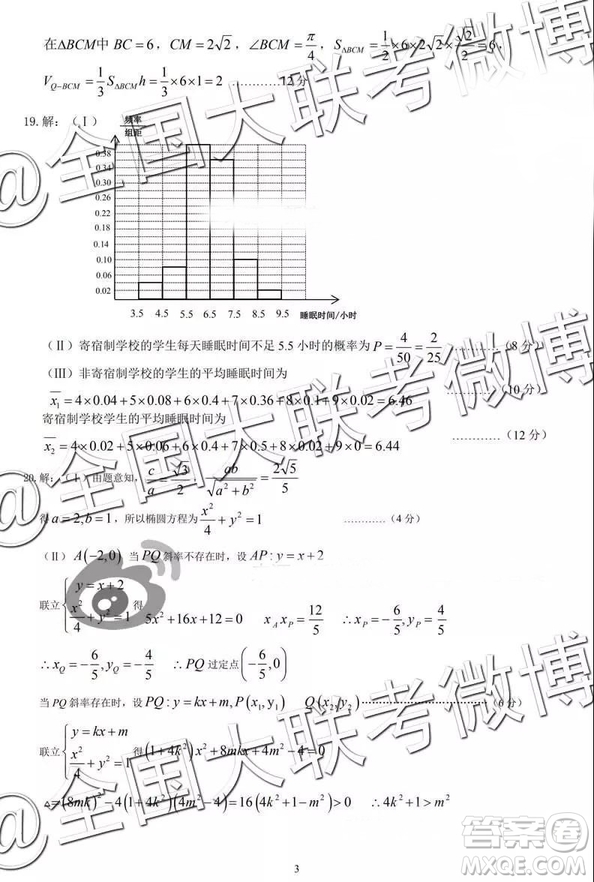 在ΔBCM中 BC=6，CM=2√2，∠BCM=π/4，S_{ΔBCM}=1/2×6×2√2×√2/2=6，
V_{Q-BCM}=1/3 S_{ΔBCM}h=1/3×6×1=2 …………12分
19.解：（Ⅰ）
频率
组距
0.38
0.34
0.30
0.26
0.22
0.18
0.14
0.10
0.06
0.02
3.5 4.5 5.5 6.5 7.5 8.5 9.5 睡眠时间/小时
（Ⅱ）寄宿制学校的学生每天睡眠时间不足 5.5 小时的概率为 P=4/50=2/25 …………（8 分）
（Ⅲ）非寄宿制学校的学生的平均睡眠时间为
x̄₁=4×0.04+5×0.08+6×0.4+7×0.36+8×0.1+9×0.02=6.46 …………（10分）
寄宿制学校学生的平均睡眠时间为
x̄₂=4×0.02+5×0.06+6×0.4+7×0.5+8×0.02+9×0=6.44 …………（12 分）
20.解：（Ⅰ）由题意知，c/a=√3/2，ab/√(a²+b²)=2√5/5
得 a=2,b=1，所以椭圆方程为 x²/4+y²=1 …………（4 分）
（Ⅱ）A(-2,0) 当 PQ 斜率不存在时，设 AP:y=x+2
联立{y=x+2 x²/4+y²=1 得 5x²+16x+12=0 x_A x_P=12/5 ∴x_P=-6/5,y_P=4/5
∴x_Q=-6/5,y_Q=-4/5 ∴PQ 过定点(-6/5,0)
当 PQ 斜率存在时，设 PQ:y=kx+m,P(x₁,y₁) Q(x₂,y₂)…………（6 分）
联立{y=kx+m x²/4+y²=1 得(1+4k²)x²+8mkx+4m²-4=0
△=(8mk)²-4(1+4k²)(4m²-4)=16(4k²+1-m²)>0 ∴4k²+1>m²
3
@全国大联考微博
@全国大联考微博
@全国大联考微博
答案圈
MXQE.COM